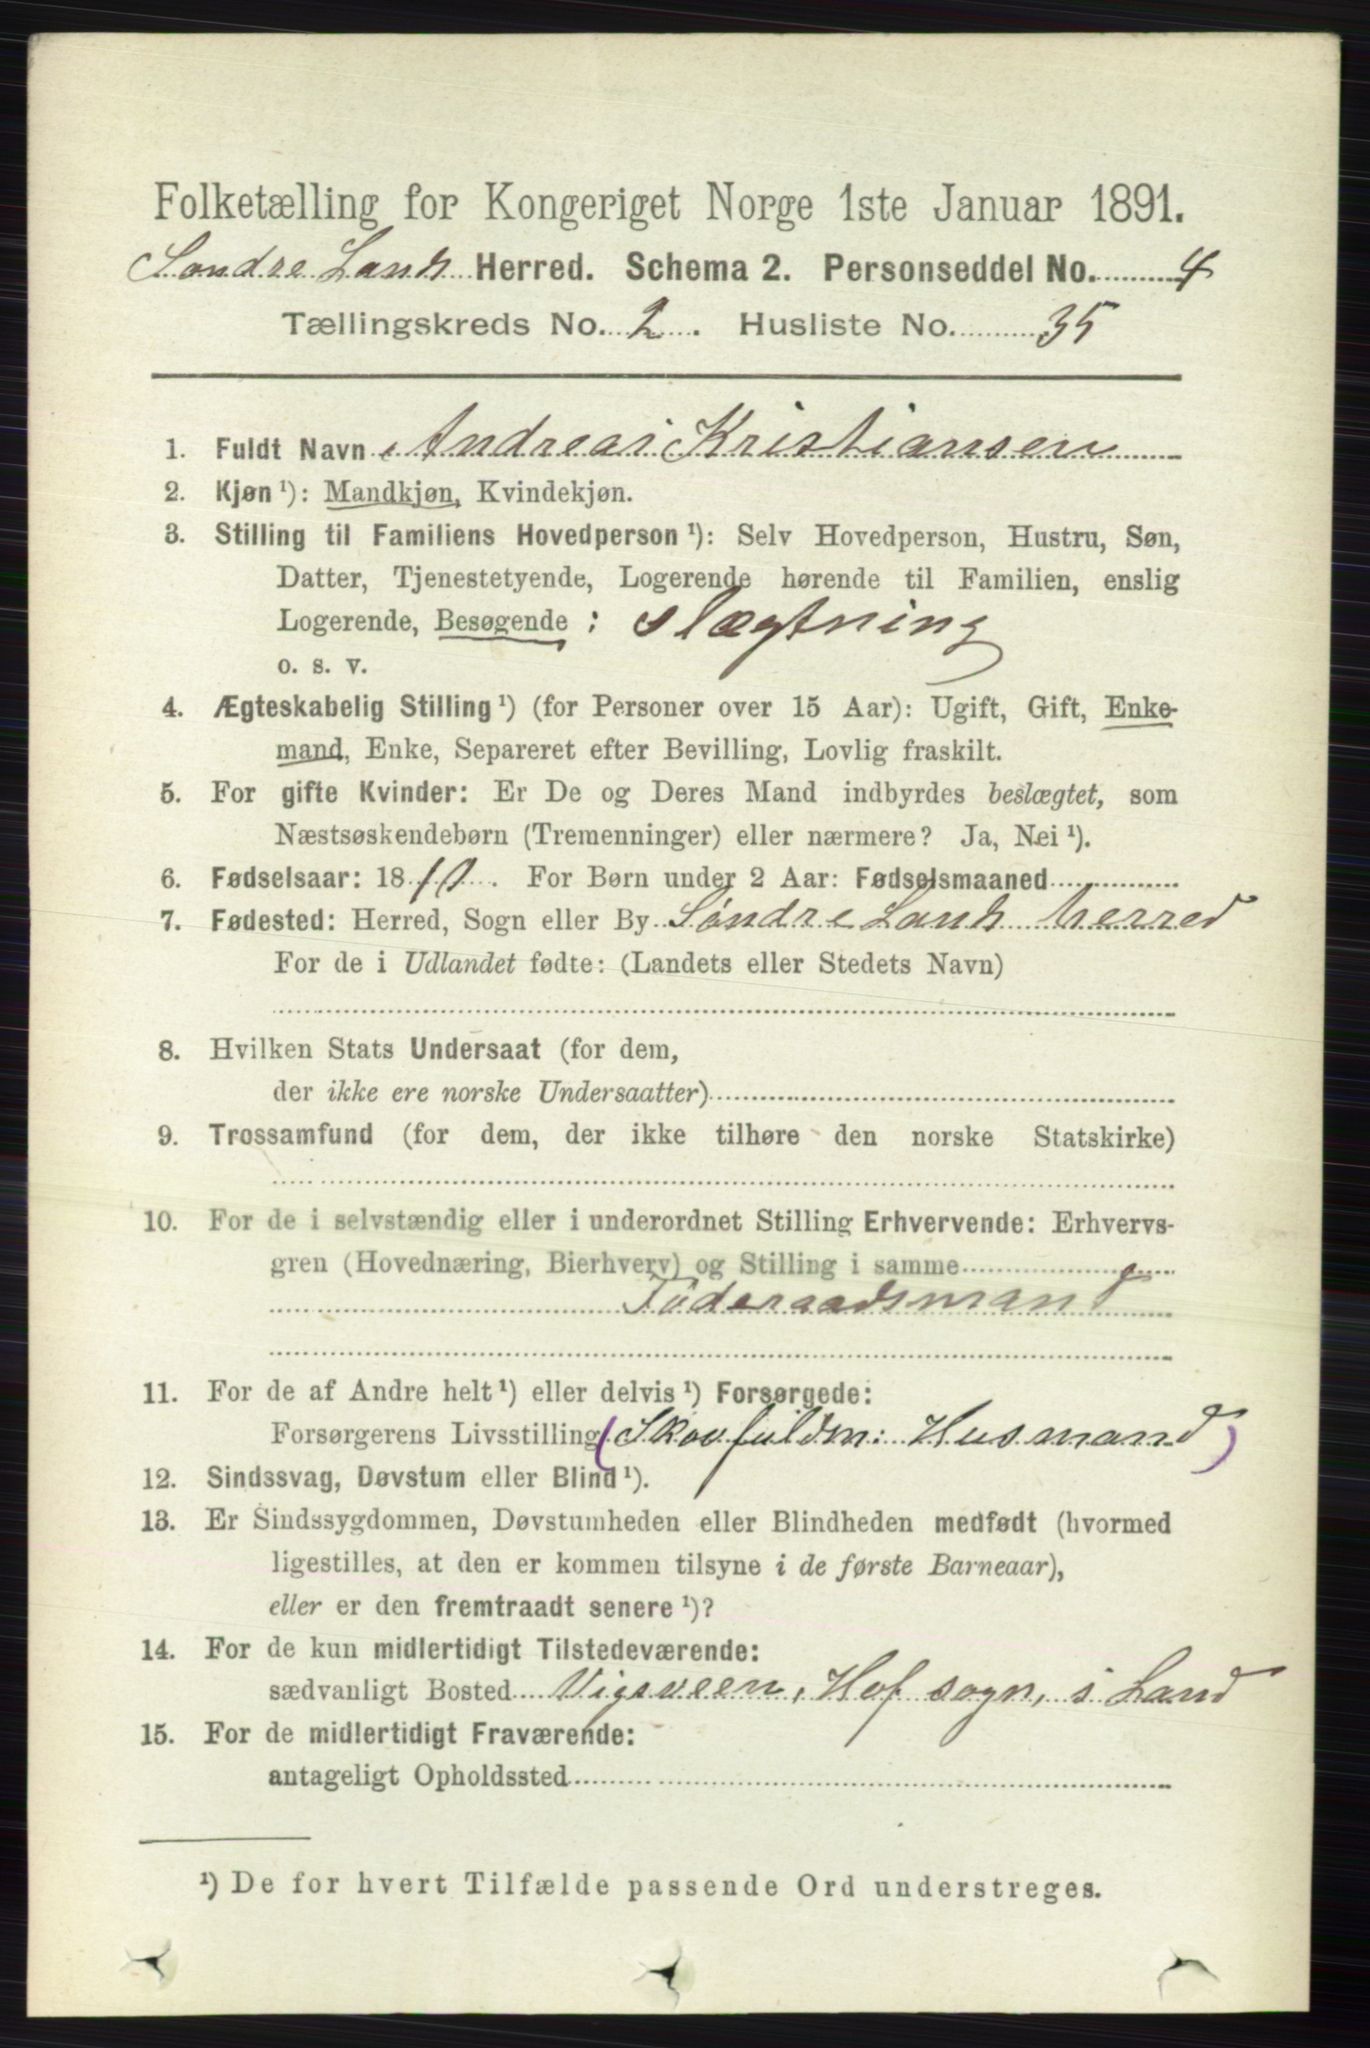 Folketælling for Kongeriget Norge 1ste Januar 1891.
Søndre Land Herred. Schema 2. Personseddel No. 4
Tællingskreds No. 2. Husliste No. 35
1. Fuldt Navn Andreas Kristiansen
2. Kjøn ¹): Mandkjøn, Kvindekjøn.
3. Stilling til Familiens Hovedperson ¹): Selv Hovedperson, Hustru, Søn,
Datter, Tjenestetyende, Logerende hørende til Familien, enslig
Logerende, Besøgende : slægtning
o. s. v.
4. Ægteskabelig Stilling ¹) (for Personer over 15 Aar): Ugift, Gift, Enke-
mand, Enke, Separeret efter Bevilling, Lovlig fraskilt.
5. For gifte Kvinder: Er De og Deres Mand indbyrdes beslægtet, som
Næstsøskendebørn (Tremenninger) eller nærmere? Ja, Nei ¹).
6. Fødselsaar: 18 . For Børn under 2 Aar: Fødselsmaaned
7. Fødested: Herred, Sogn eller By Søndre Land herred
For de i Udlandet fødte: (Landets eller Stedets Navn)
8. Hvilken Stats Undersaat (for dem,
der ikke ere norske Undersaatter)
9. Trossamfund (for dem, der ikke tilhøre den norske Statskirke)
10. For de i selvstændig eller i underordnet Stilling Erhvervende: Erhvervs-
gren (Hovednæring, Bierhverv) og Stilling i samme
Föderaadsmand
11. For de af Andre helt ¹) eller delvis ¹) Forsørgede:
Forsørgerens Livsstilling (Skovfuldm: Husmand)
12. Sindssvag, Døvstum eller Blind ¹).
13. Er Sindssygdommen, Døvstumheden eller Blindheden medfødt (hvormed
ligestilles, at den er kommen tilsyne i de første Barneaar),
eller er den fremtraadt senere ¹)?
14. For de kun midlertidigt Tilstedeværende:
sædvanligt Bosted Vigsveen, Hof sogn, i Land
15. For de midlertidigt Fraværende:
antageligt Opholdssted
¹) De for hvert Tilfælde passende Ord understreges.